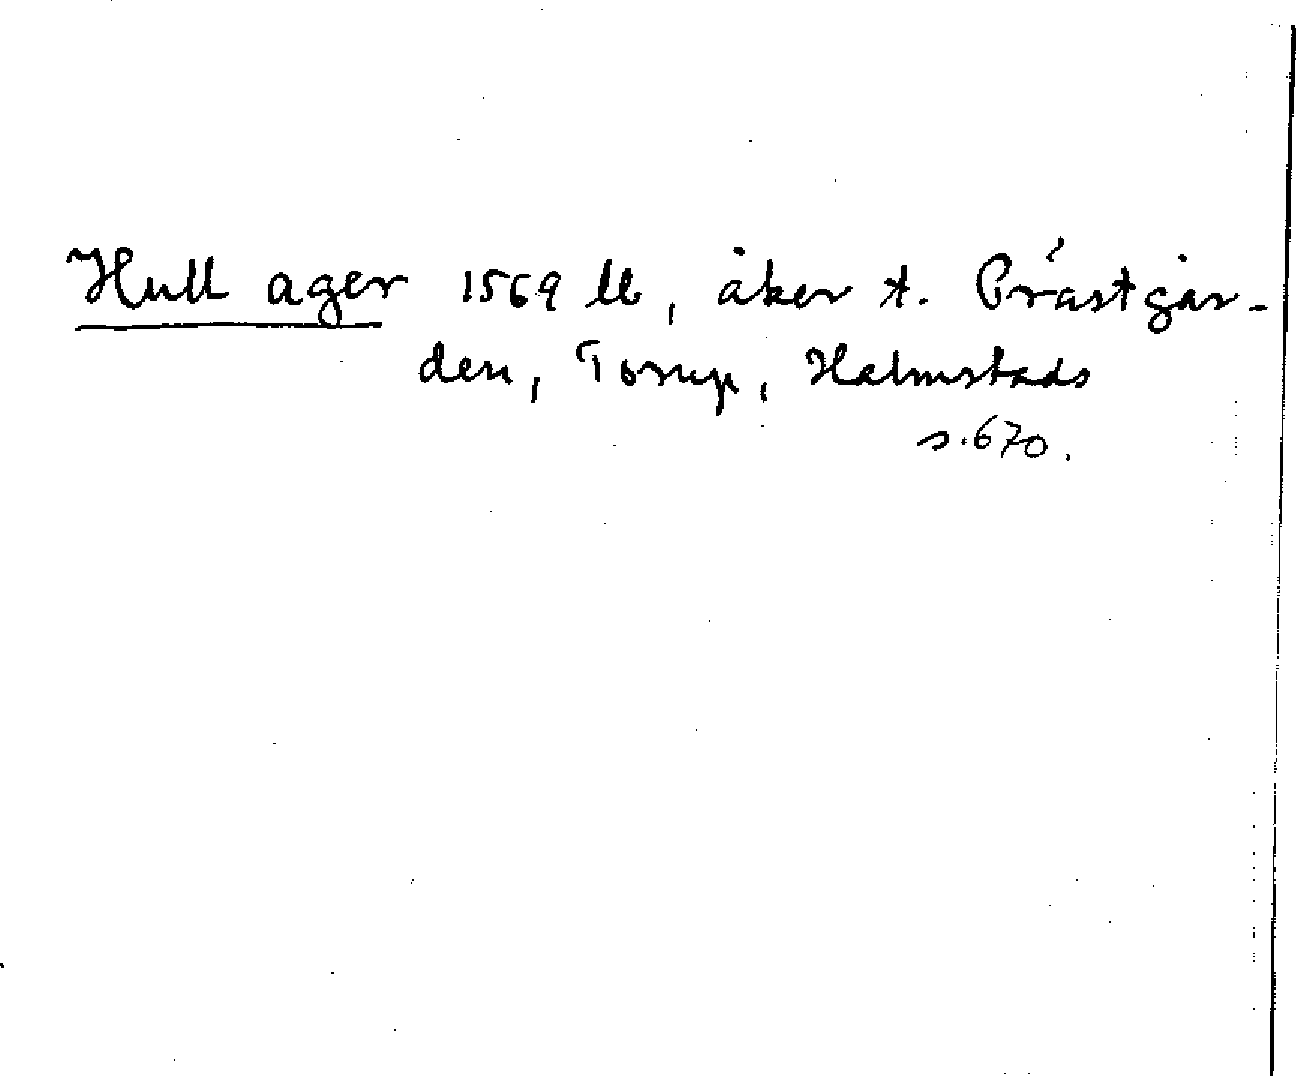 Hull ager 1569 lb, åker t. Prästgår-
den, Torup, Halmstads
s. 670.